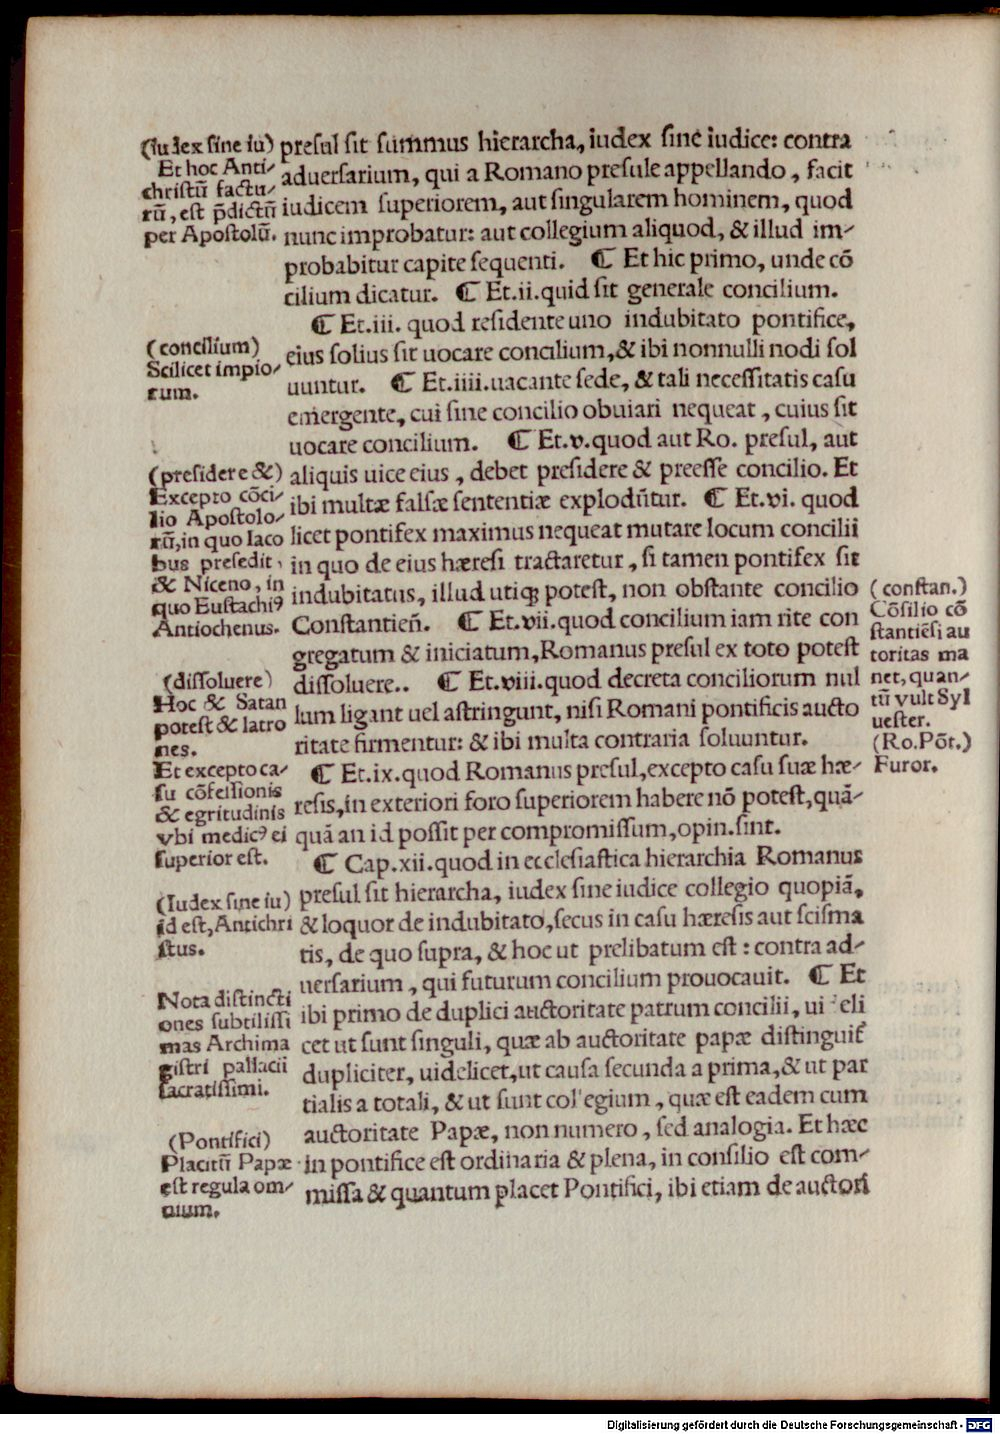 presul sit summus hierarcha, iudex sine iudice: contra
aduersarium, qui a Romano presule appellando, facit
iudicem superiorem, aut singularem hominem, quod
nunc improbatur: aut collegium aliquod, & illud im-
probabitur capite sequenti. ¶ Et hic primo, unde cõ
cilium dicatur. ¶ Et.ii.quid sit generale concilium.
¶ Et.iii. quod residente uno indubitato pontifice,
eius solius sit uocare concilium,& ibi nonnulli nodi sol
uuntur. ¶ Et.iiii.uacante sede, & tali necessitatis casu
emergente, cui sine concilio obuiari nequeat, cuius sit
uocare concilium. ¶ Et.v.quod aut Ro. presul, aut
aliquis uice eius, debet presidere & preesse concilio. Et
ibi multæ falsæ sententiæ explodũtur. ¶ Et.vi. quod
licet pontifex maximus nequeat mutare locum concilii
in quo de eius hæresi tractaretur, si tamen pontifex sit
indubitatus, illud utiqꝫ potest, non obstante concilio
Constantieñ. ¶ Et.vii.quod concilium iam rite con
gregatum & iniciatum,Romanus presul ex toto potest
dissoluere.. ¶ Et.viii.quod decreta conciliorum nul
lum ligant uel astringunt, nisi Romani pontificis aucto
ritate firmentur: & ibi multa contraria soluuntur.
¶ Et.ix.quod Romanus presul,excepto casu suæ hæ-
resis,in exteriori foro superiorem habere nõ potest,quã-
quã an id possit per compromissum,opin.sint.
¶ Cap.xii.quod in ecclesiastica hierarchia Romanus
presul sit hierarcha, iudex sine iudice collegio quopiã,
& loquor de indubitato,secus in casu hæresis aut scisma
tis, de quo supra, & hoc ut prelibatum est: contra ad-
uersarium, qui futurum concilium prouocauit. ¶ Et
ibi primo de duplici auctoritate patrum concilii, ui eli
cet ut sunt singuli, quæ ab auctoritate papæ distinguit̃
dupliciter, uidelicet,ut causa secunda a prima,& ut par
tialis a totali, & ut sunt col egium, quæ est eadem cum
auctoritate Papæ, non numero, sed analogia. Et hæc
in pontifice est ordinaria & plena, in consilio est com-
missa & quantum placet Pontifici, ibi etiam de auctori
(Iudex sine iu)
Et hoc Anti-
christũ factu-
rũ, est p̃dictũ
per Apostolũ.
(concilium)
Scilicet impio-
rum.
(presidere &)
Excepto cõci-
lio Apostolo-
rũ,in quo Iaco
bus presedit,
& Niceno, in
quo Eustachi⁹
Antiochenus.
(dissoluere)
Hoc & Satan
potest & latro
nes.
Et excepto ca-
su cõfessionis
& egritudinis
vbi medic⁹ ei
superior est.
(Iudex sine iu)
id est, Antichri
stus.
Nota distincti
ones subtilissi
mas Archima
gistri pallacii
sacratissimi.
(Pontifici)
Placitũ Papæ
est regula om-
nium.
(constan.)
Cõsilio cõ
stantiẽsi au
toritas ma
net, quan-
tũ vult Syl
uester.
(Ro.Põt.)
Furor.
Digitalisierung gefördert durch die Deutsche Forschungsgemeinschaft - DFG